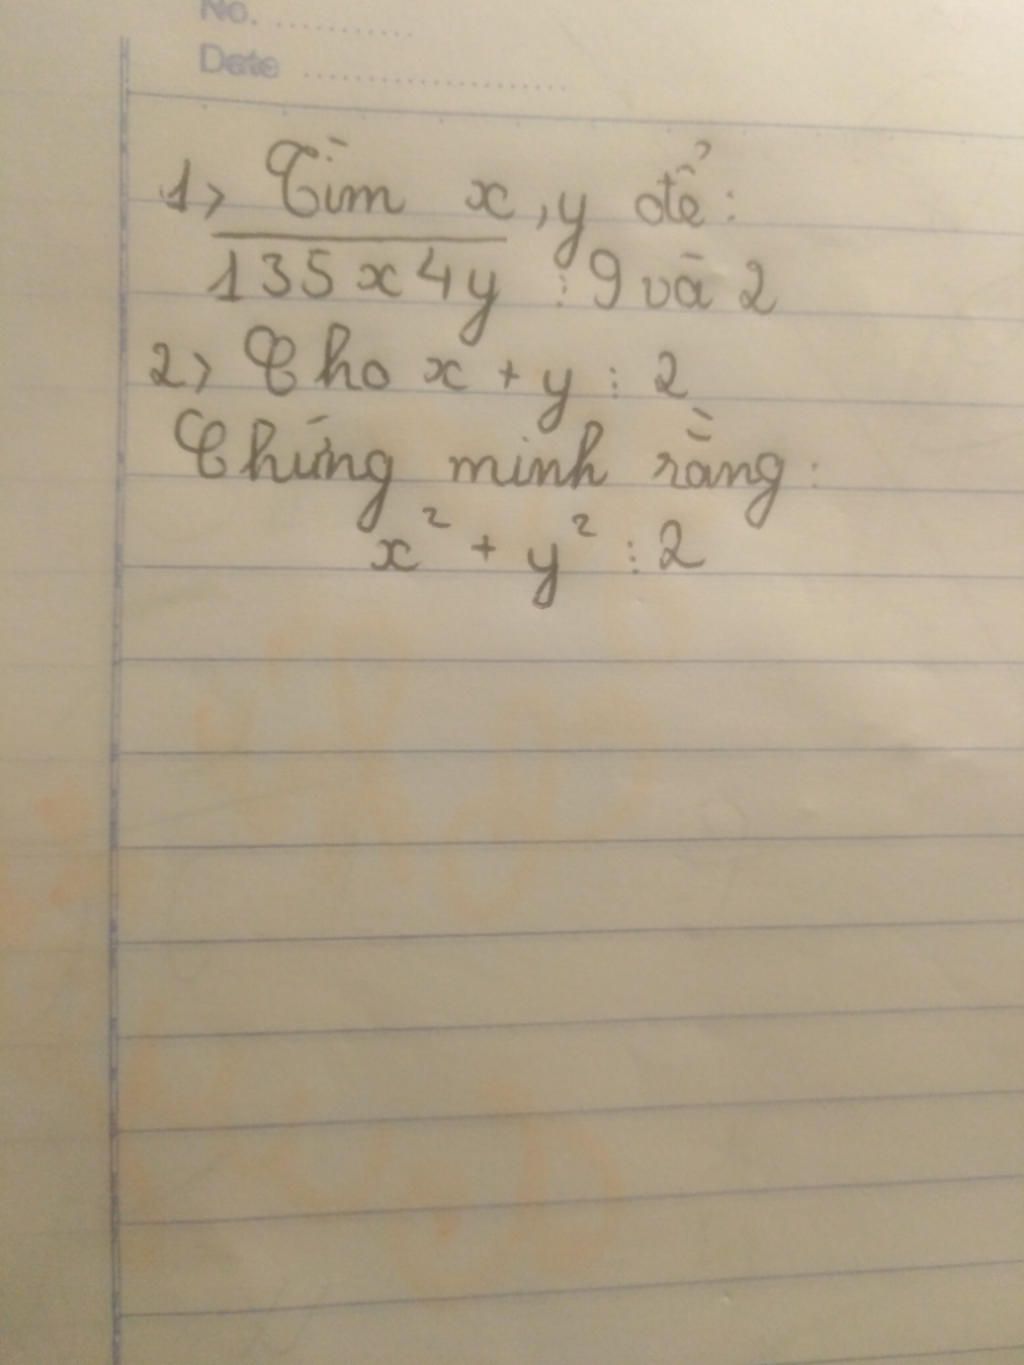 No. ............
Date ......................
1> Tìm x, y để:
135x4y ⋮ 9 và 2
2> Cho x + y ⋮ 2
Chứng minh rằng:
x² + y² ⋮ 2